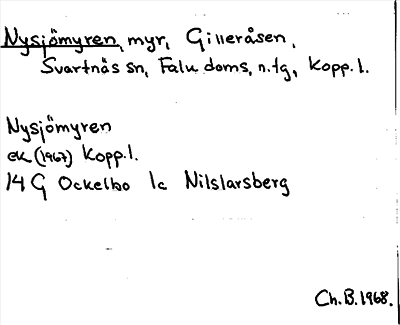 Nysjömyren, myr, Gilleråsen,
Svartnäs sn, Falu doms. n. tg, Kopp. l.
Nysjömyren
ek (1967) Kopp. l.
14 G Ockelbo 1c Nilslarsberg
Ch. B. 1968.